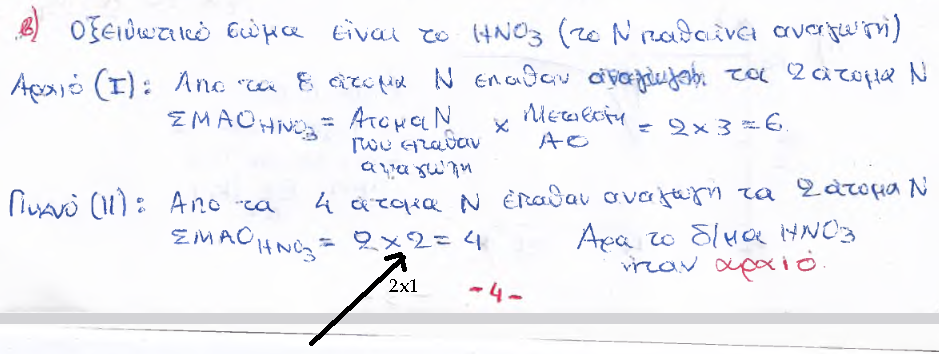 β) Οξειδωτικό σώμα είναι το HNO3 (το N παθαίνει αναγωγή)
Αραιό (I): Απο τα 8 άτομα N έπαθαν αναγωγή τα 2 άτομα N
ΣΜΑΟHNO3 = Ατομα N που έπαθαν αναγωγή x Μεταβολή ΑΟ = 2 x 3 = 6
Πυκνό (II): Απο τα 4 άτομα N έπαθαν αναγωγή τα 2 άτομα N
ΣΜΑΟHNO3 = 2 x 2 = 4 Αρα το δ/μα HNO3
ήταν αραιό.
2x1
-4-